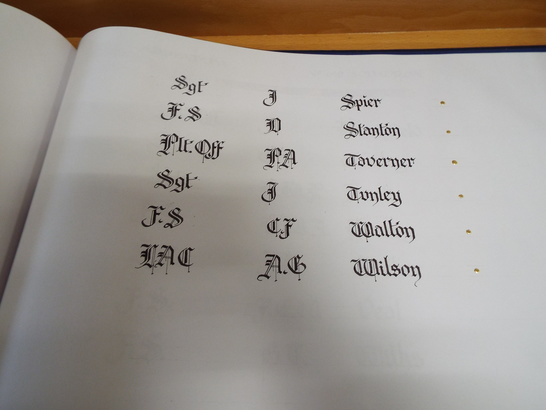 Sgt J Spier
F.S D Stanton
Plt.Off P.A Taverner
Sgt J Tonley
F.S C.F Walton
LAC A.G Wilson